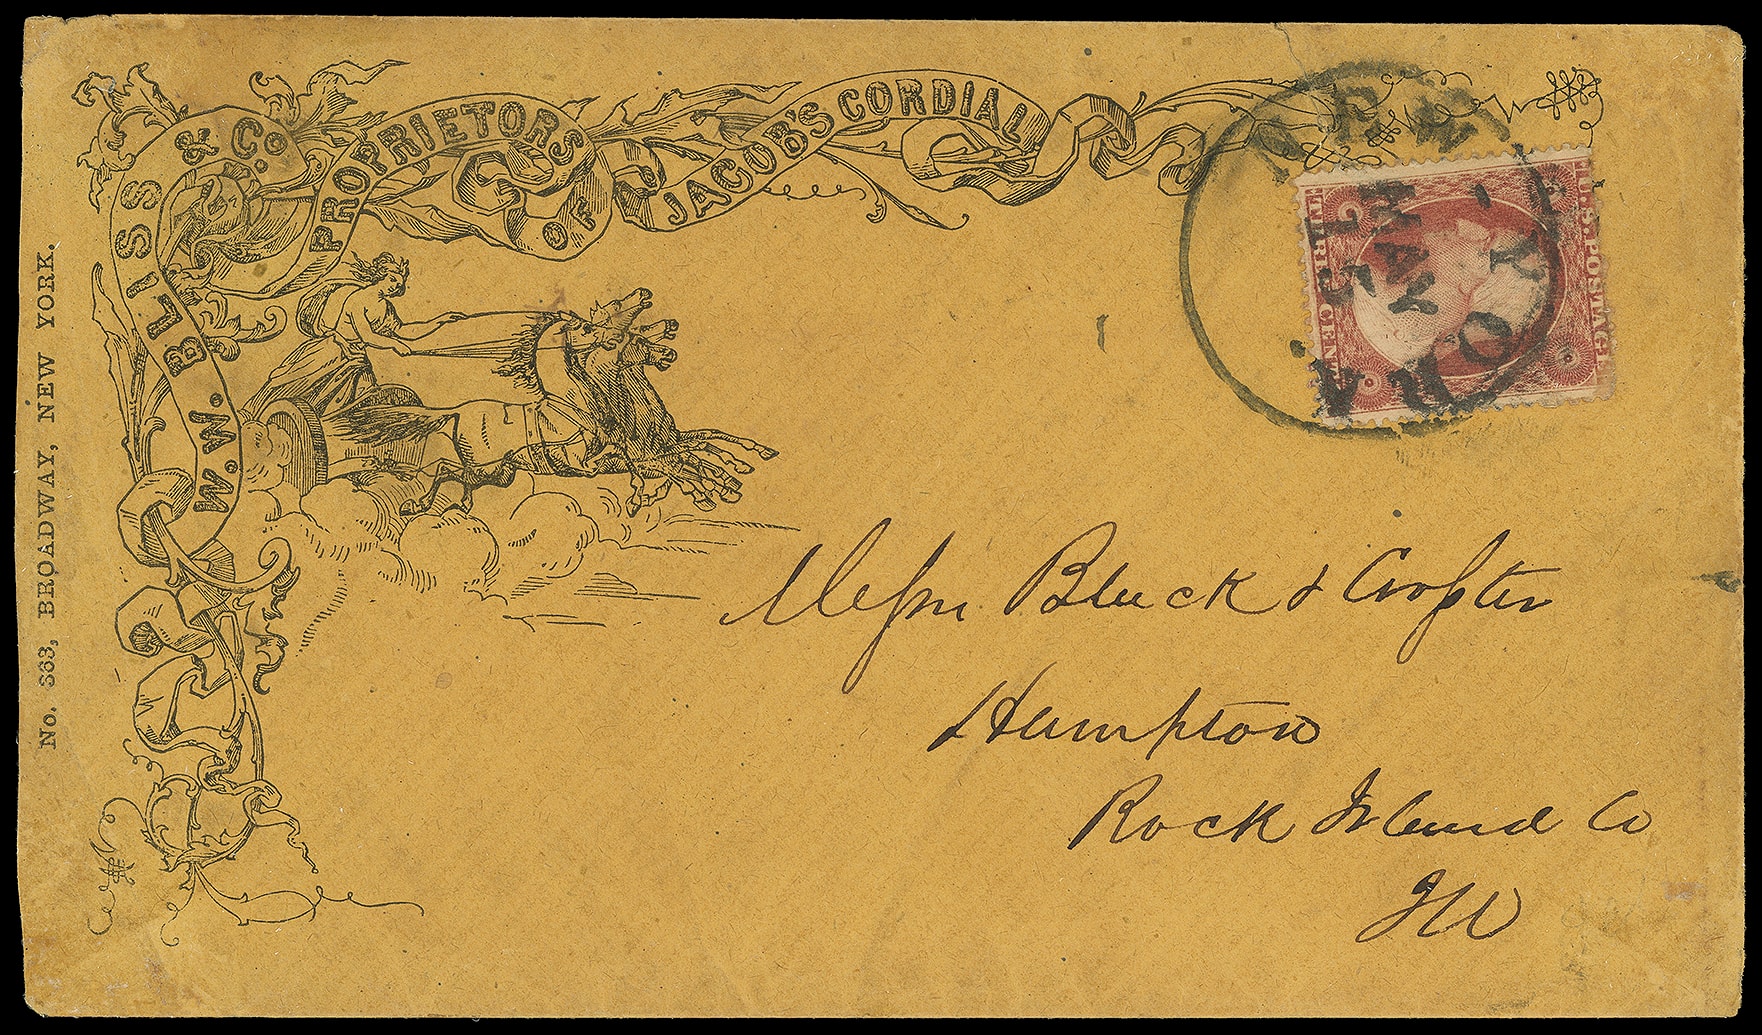 W. W. BLISS & Co. PROPRIETORS OF JACOB'S CORDIAL
No. 363, BROADWAY, NEW YORK.
NEW-YORK
MAY
15
U.S. POSTAGE
THREE CENTS
Messrs Black & Crofster
Hampton
Rock Island Co
Ill